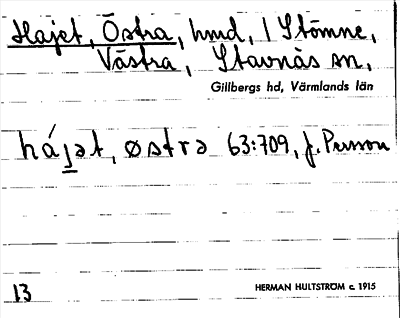 Hajet, Östra, hmd, / Stömne,
Västra, Stavnäs sn,
Gillbergs hd, Värmlands län
hájət, østra 63:709, J. Persson
13
HERMAN HULTSTRÖM c. 1915